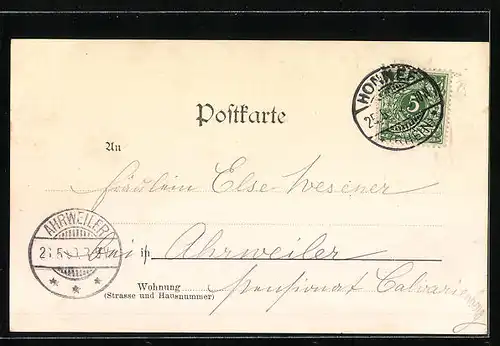 HONNEF
25.
(RHEIN)
5
Postkarte
An
Fräulein Else Wesener
AHRWEILER
in Ahrweiler
Wohnung
(Strasse und Hausnummer)
Pensionat Calvarienberg